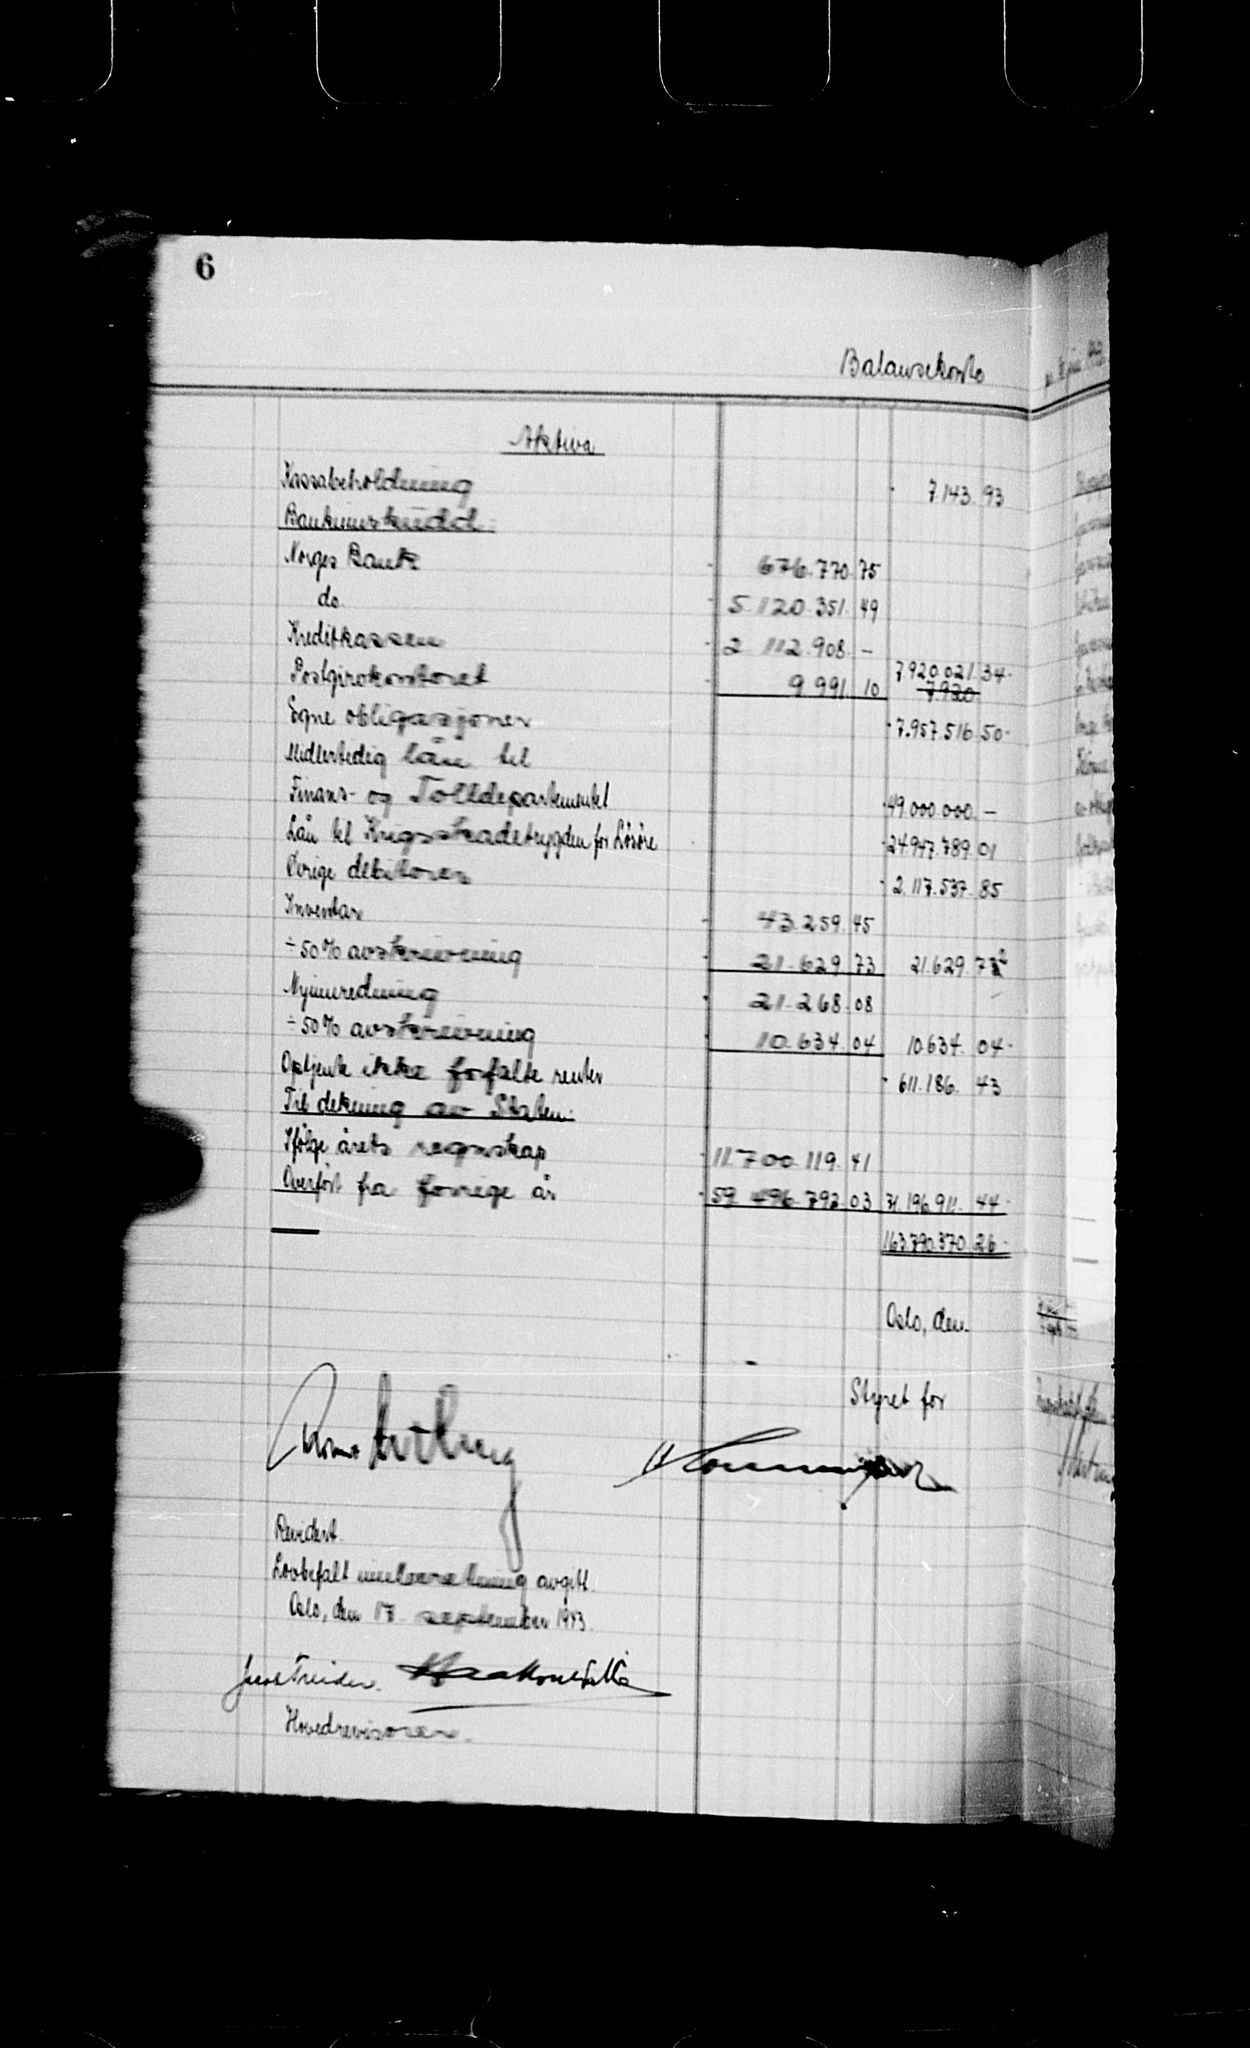 6
Balansekonto
Aktiva
Kassabeholdning 7.143.93
Bankinnskudd:
Norges Bank 676.770.75
do. 5.120.351.49
Kreditkassen 2.112.908.-
Postgirokontoret 9.991.10 7.920.021.34
7.920
Egne obligasjoner 7.957.516.50
Midlertidig lån til
Finans- og Tolldepartementet 49.000.000.-
Lån til Krigsskadetrygden for Lösöre 24.947.789.01
Övrige debitorer 2.117.537.85
Inventar 43.259.45
÷ 50% avskrivning 21.629.73 21.629.72
Nyinnredning 21.268.08
÷ 50% avskrivning 10.634.04 10.634.04
Optjente ikke forfalte renter 611.186.43
Til dekning av Staten:
Ifölge årets regnskap 11.700.119.41
Overfört fra forrige år 59.496.792.03 71.196.911.44
163.790.370.26
Oslo, den
Styret for
Revidert.
Lovbefalt innberetning avgitt.
Oslo, den 17. september 1943.
Hovedrevisorer.